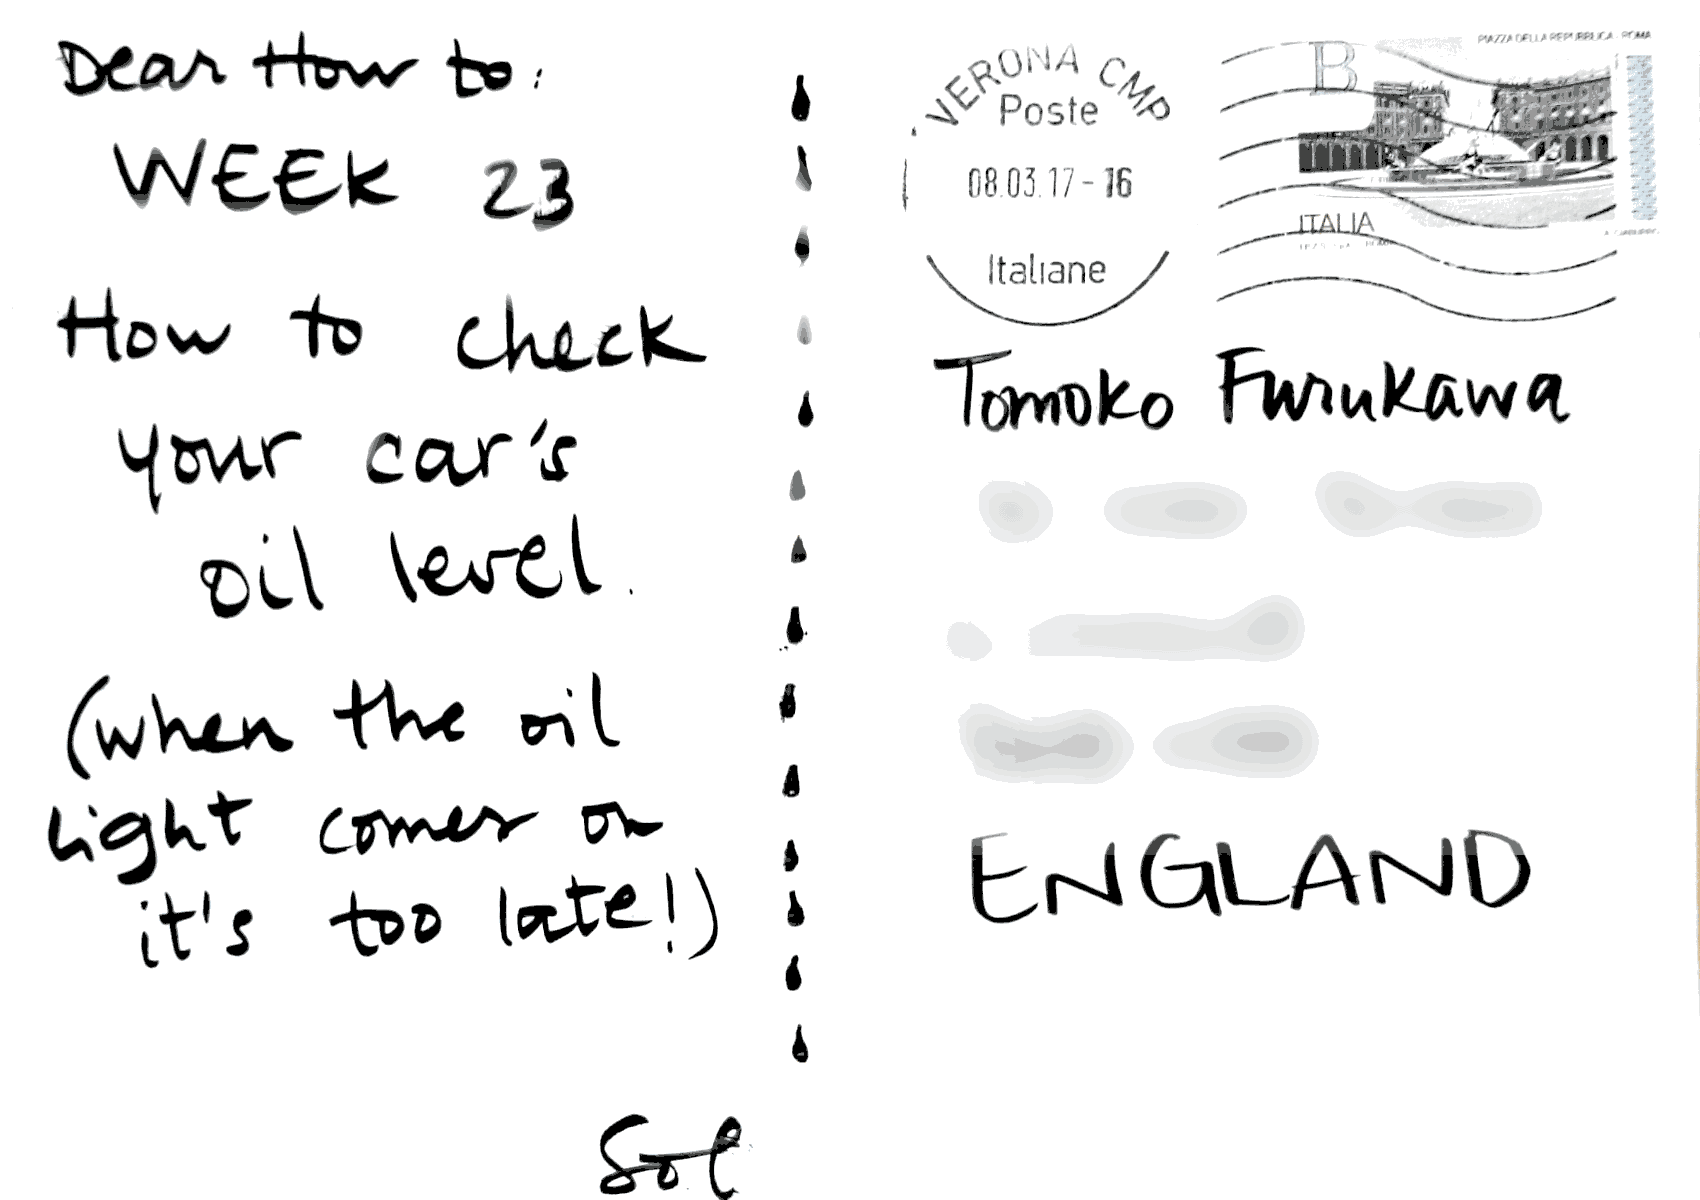 Dear How to:
WEEK 23
How to check
your car's
oil level.
(when the oil
light comes on
it's too late!)
Sol
VERONA CMP
Poste
08.03.17-16
Italiane
PIAZZA DELLA REPUBBLICA - ROMA
B
ITALIA
Tomoko Furukawa
ENGLAND